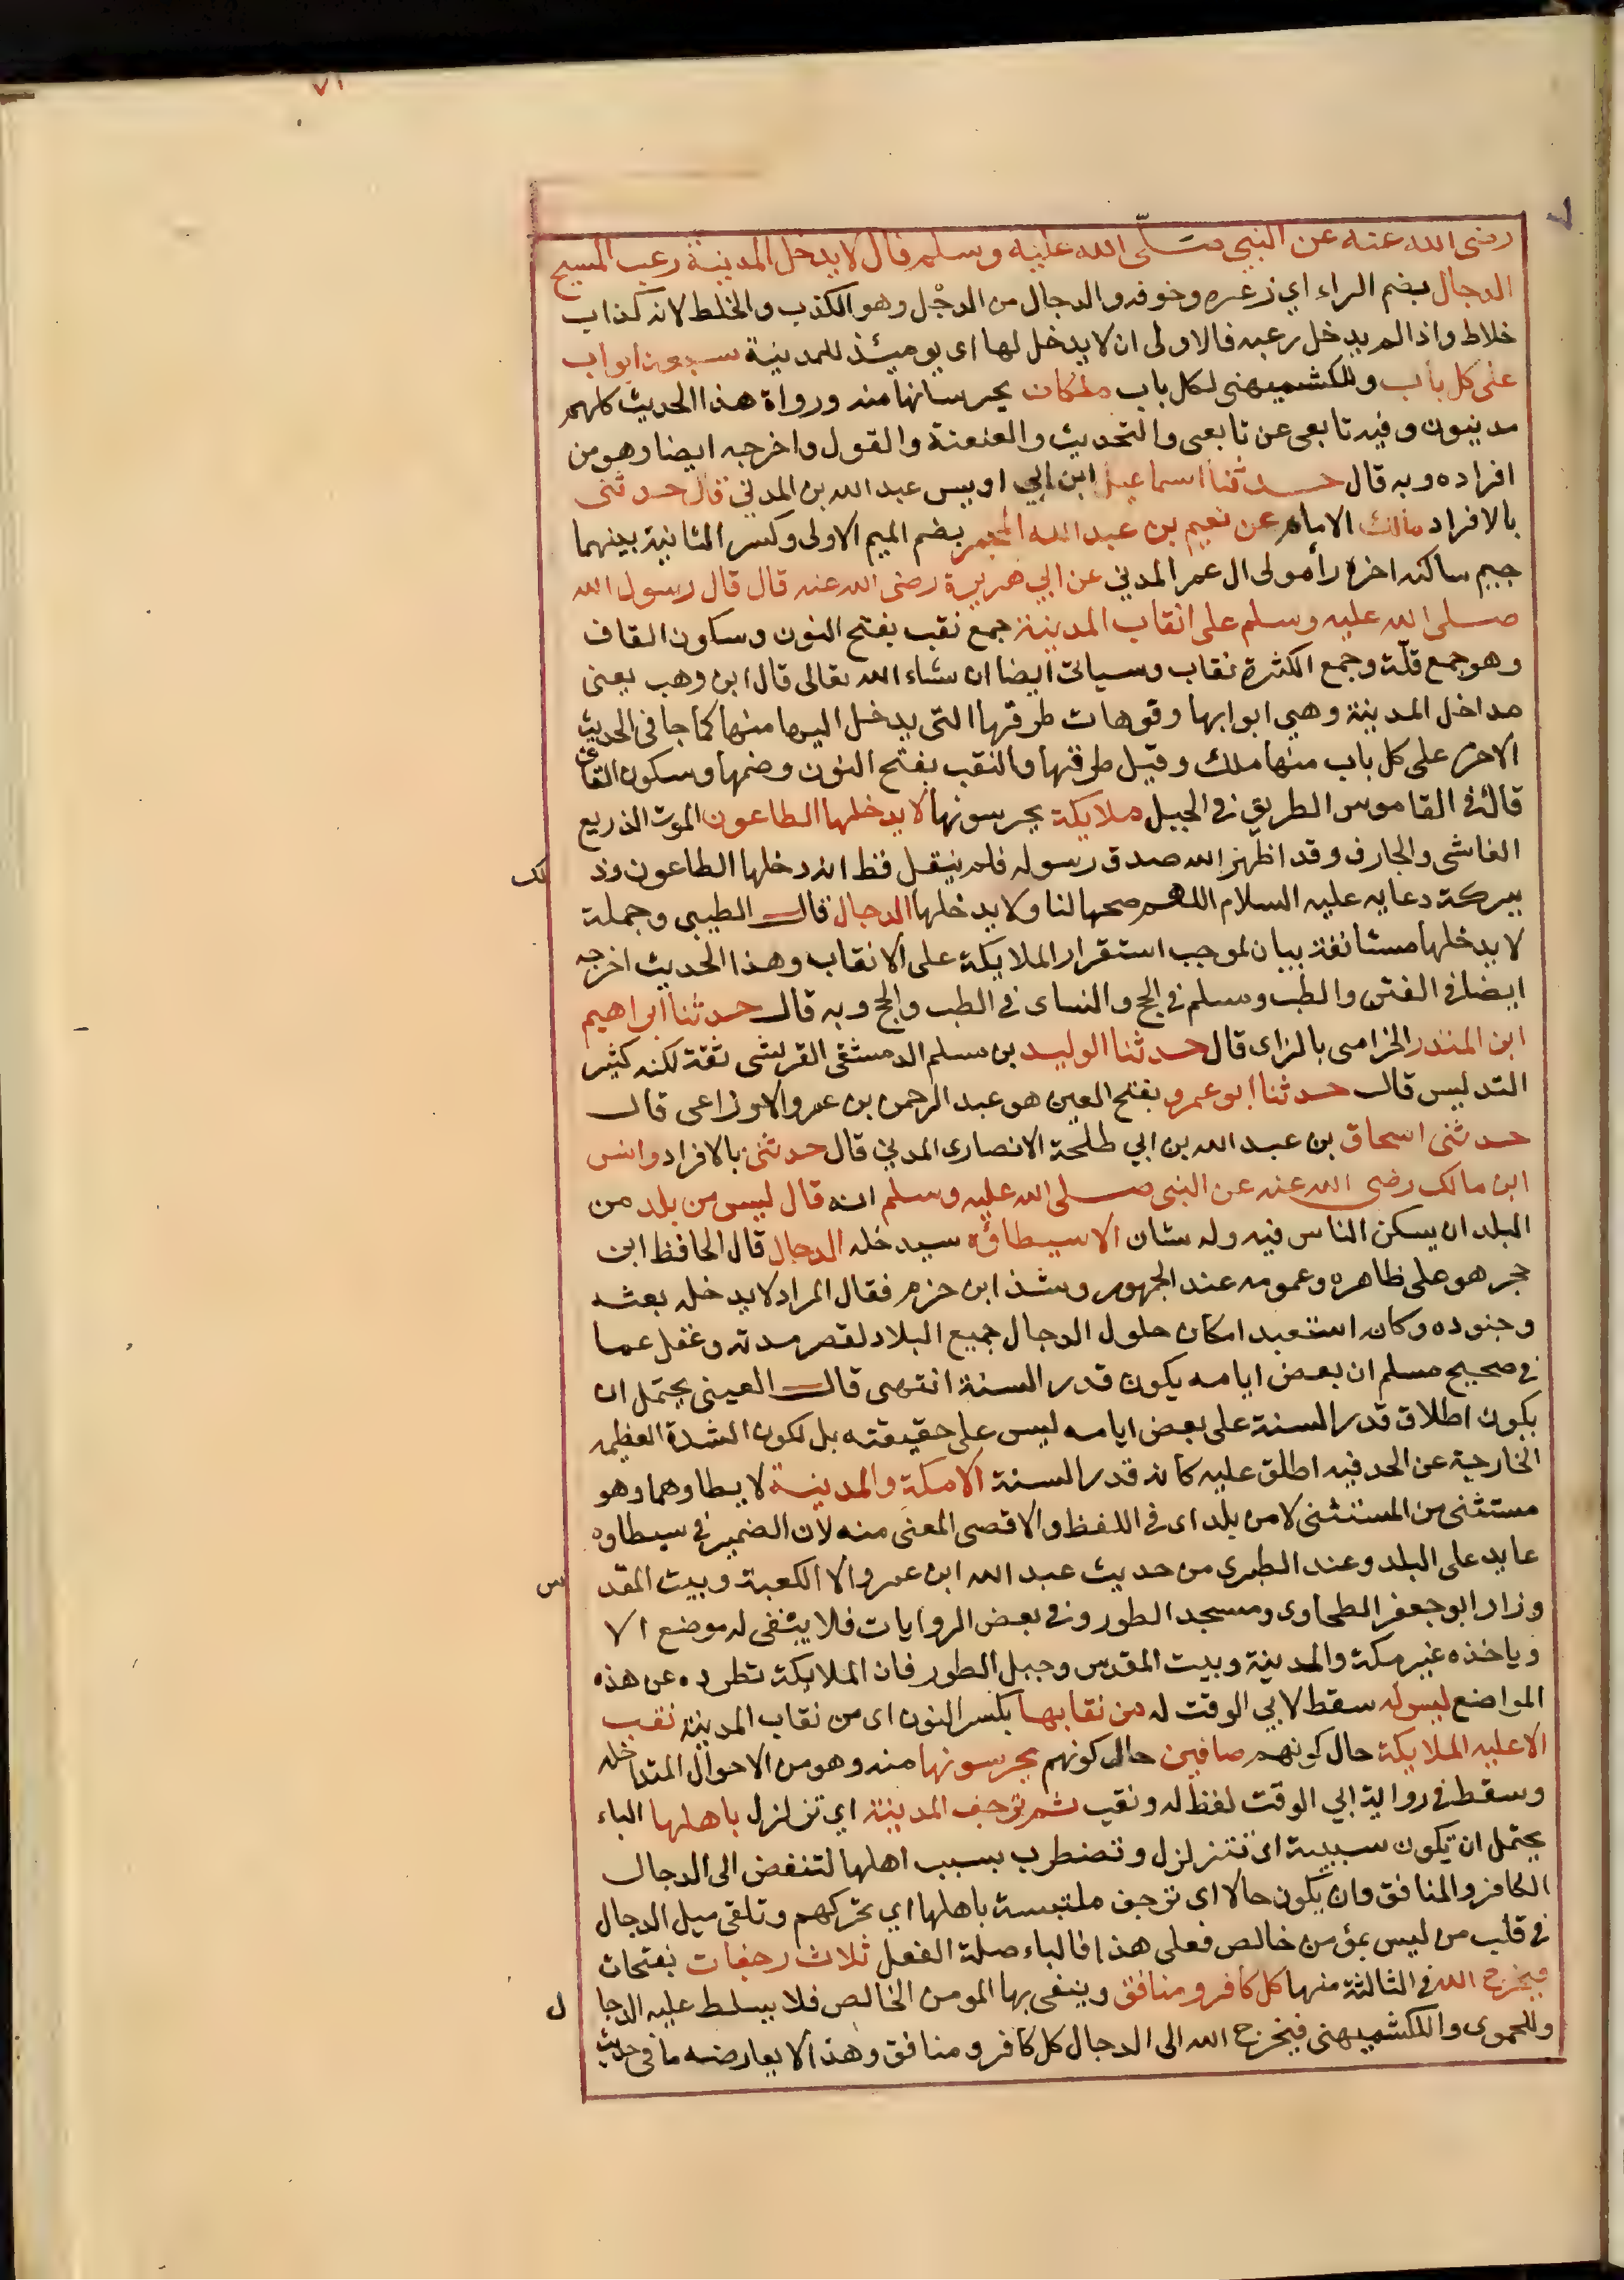 ٧١
رضى الله عنه عن النبي صلّى الله عليه وسلم قال لا يدخل المدينة رعب المسيح
الدجال بضم الراء اي ذعره وخوفه والدجال من الدجْل وهو الكذب والخلط لانه كذاب
خلاط واذا لم يدخل رعبه فالاولى ان لا يدخل لها اى يوميئذ للمدينة سبعة ابواب
على كل باب وللكشميهنى لكل باب ملكان يحرسانها منه ورواة هذا الحديث كلهم
مدنيون وفيه تابعى عن تابعى والتحديث والعنعنة والقول واخرجه ايضا وهو من
افراده وبه قال حدثنا اسماعيل ابن ابي اويس عبد الله بن المدني قال حدثنى
بالافراد مالك الامام عن نعيم بن عبد الله المجمر بضم الميم الاولى وكسر الثانية بينهما
جيم ساكنه اخره رأ مولى ال عمر المدني عن ابي هريرة رضى الله عنه قال قال رسول الله
صلى الله عليه وسلم على انقاب المدينة جمع نقب بفتح النون وسكون القاف
وهو جمع قلّة وجمع الكثرة نقاب وسياتى ايضا ان شاء الله تعالى قال ابن وهب يعنى
مداخل المدينة وهي ابوابها وفوهات طرقها التى يدخل اليها منها كما جا فى الحديث
الاخر على كل باب منها ملك وقيل طرقها والنقب بفتح النون وضمها وسكون القاف
قال فى القاموس الطريق فى الجبل ملايكة يحرسونها لا يدخلها الطاعون الموت الذريع
الفاشى والجارف وقد اظهر الله صدق رسوله فلم ينقل قط انه دخلها الطاعون وذ لك
ببركة دعايه عليه السلام اللهم صححها لنا ولا يدخلها الدجال قال الطيبى وجملة
لا يدخلها مستانفة بيان لموجب استقرار الملايكة على الانقاب وهذا الحديث اخرجه
ايضا فى الفتن والطب ومسلم فى الحج والنساى فى الطب والحج وبه قال حدثنا ابراهيم
ابن المنذر الخزامى بالزاى قال حدثنا الوليد بن مسلم الدمشقى القرشى ثقة لكنه كثير
التدليس قال حدثنا ابو عمرو بفتح العين هو عبد الرحمن بن عمرو الاوزاعى قال
حدثنى اسحاق بن عبد الله بن ابي طلحة الانصارى المدني قال حدثنى بالافراد وانس
ابن مالك رضى الله عنه عن النبى صلى الله عليه وسلم انه قال ليس من بلد من
البلد ان يسكن الناس فيه وله شان الا سيطاؤه سيدخله الدجال قال الحافظ ابن
حجر هو على ظاهره وعمومه عند الجمهور وشذ ابن حزم فقال المراد لا يدخله بعثه
وجنوده وكانه استبعد امكان حلول الدجال جميع البلاد لقصر مدته وغفل عما
فى صحيح مسلم ان بعض ايامه يكون قدر السنة انتهى قال العينى يحتمل ان
يكون اطلاق قدر السنة على بعض ايامه ليس على حقيقته بل لكون الشدة العظيمه
الخارجية عن الحد فيه اطلق عليه كانه قدر السنة الا مكة والمدينة لا يطاوهما وهو
مستثنى من المستثنى لا من بلد اى فى اللفظ والا فضى المعنى منه لان الضمير فى سيطاوه
عايد على البلد وعند الطبرى من حديث عبد الله ابن عمرو الا الكعبة وبيت المقد س
وزاد ابو جعفر الطحاوى ومسجد الطور وفى بعض الروايات فلا يبقى له موضع الا
وياخذه غير مكة والمدينة وبيت المقدس وجبل الطور فان الملايكة تطرده عن هذه
المواضع ليس له سقط لابي الوقت له من نقابها بكسر النون اى من نقاب المدينة نقب
الا عليه الملايكة حال كونهم صافين حال كونهم يحرسونها منه وهو من الاحوال المتداخله
وسقط فى رواية ابي الوقت لفظ له ونقب ثم ترجف المدينة اي تزلزل باهلها الباء
يحتمل ان تكون سببية اى تتزلزل وتضطرب بسبب اهلها لتنفض الى الدجال
الكافر والمنافق وان يكون حالا اى ترجف ملتبسة باهلها اي تحركهم وتلقى ميل الدجال
فى قلب من ليس بمؤمن خالص فعلى هذا فالباء صلة الفعل ثلاث رجفات بفتحات
فيخرج الله فى الثالثة منها كل كافر ومنافق وينفى بها المومن الخالص فلا يسلط عليه الدجا ل
وللحموى والكشميهنى فيخرج الله الى الدجال كل كافر ومنافق وهذا لا يعارضه ما فى حديث